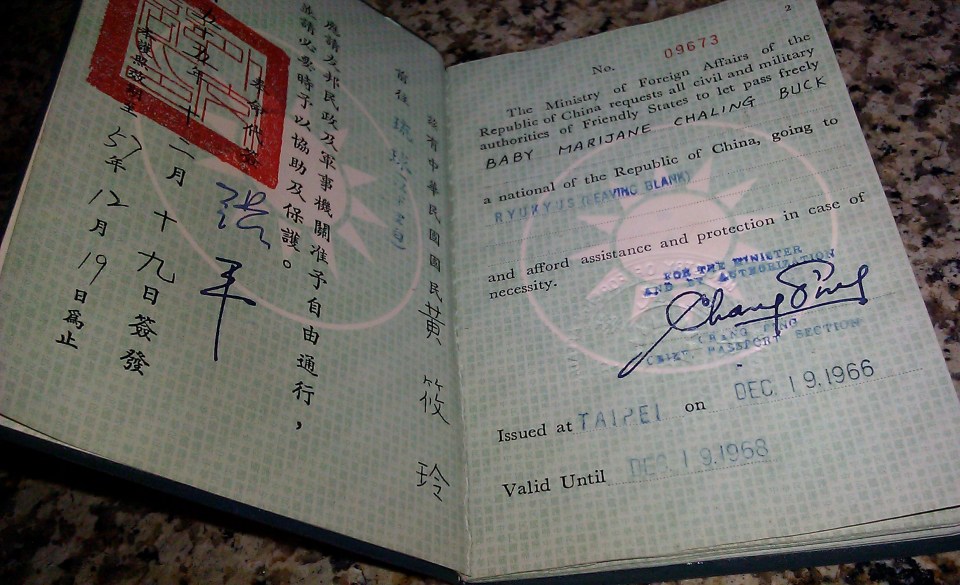 茲有中華民國國民黃筱玲
前往 琉球
應請友邦民政及軍事機關准予自由通行，
並請必要時予以協助及保護。
五十五年十二月十九日簽發
本護照效期至57年12月19日爲止
2
No. 09673
The Ministry of Foreign Affairs of the
Republic of China requests all civil and military
authorities of Friendly States to let pass freely
BABY MARIJANE CHALING BUCK
a national of the Republic of China, going to
RYUKYUS (LEAVING BLANK)
and afford assistance and protection in case of
necessity.
FOR THE MINISTER
AND BY AUTHORIZATION
Chang Ping
CHANG PING
CHIEF, PASSPORT SECTION
Issued at TAIPEI on DEC. 19.1966
Valid Until DEC. 19.1968